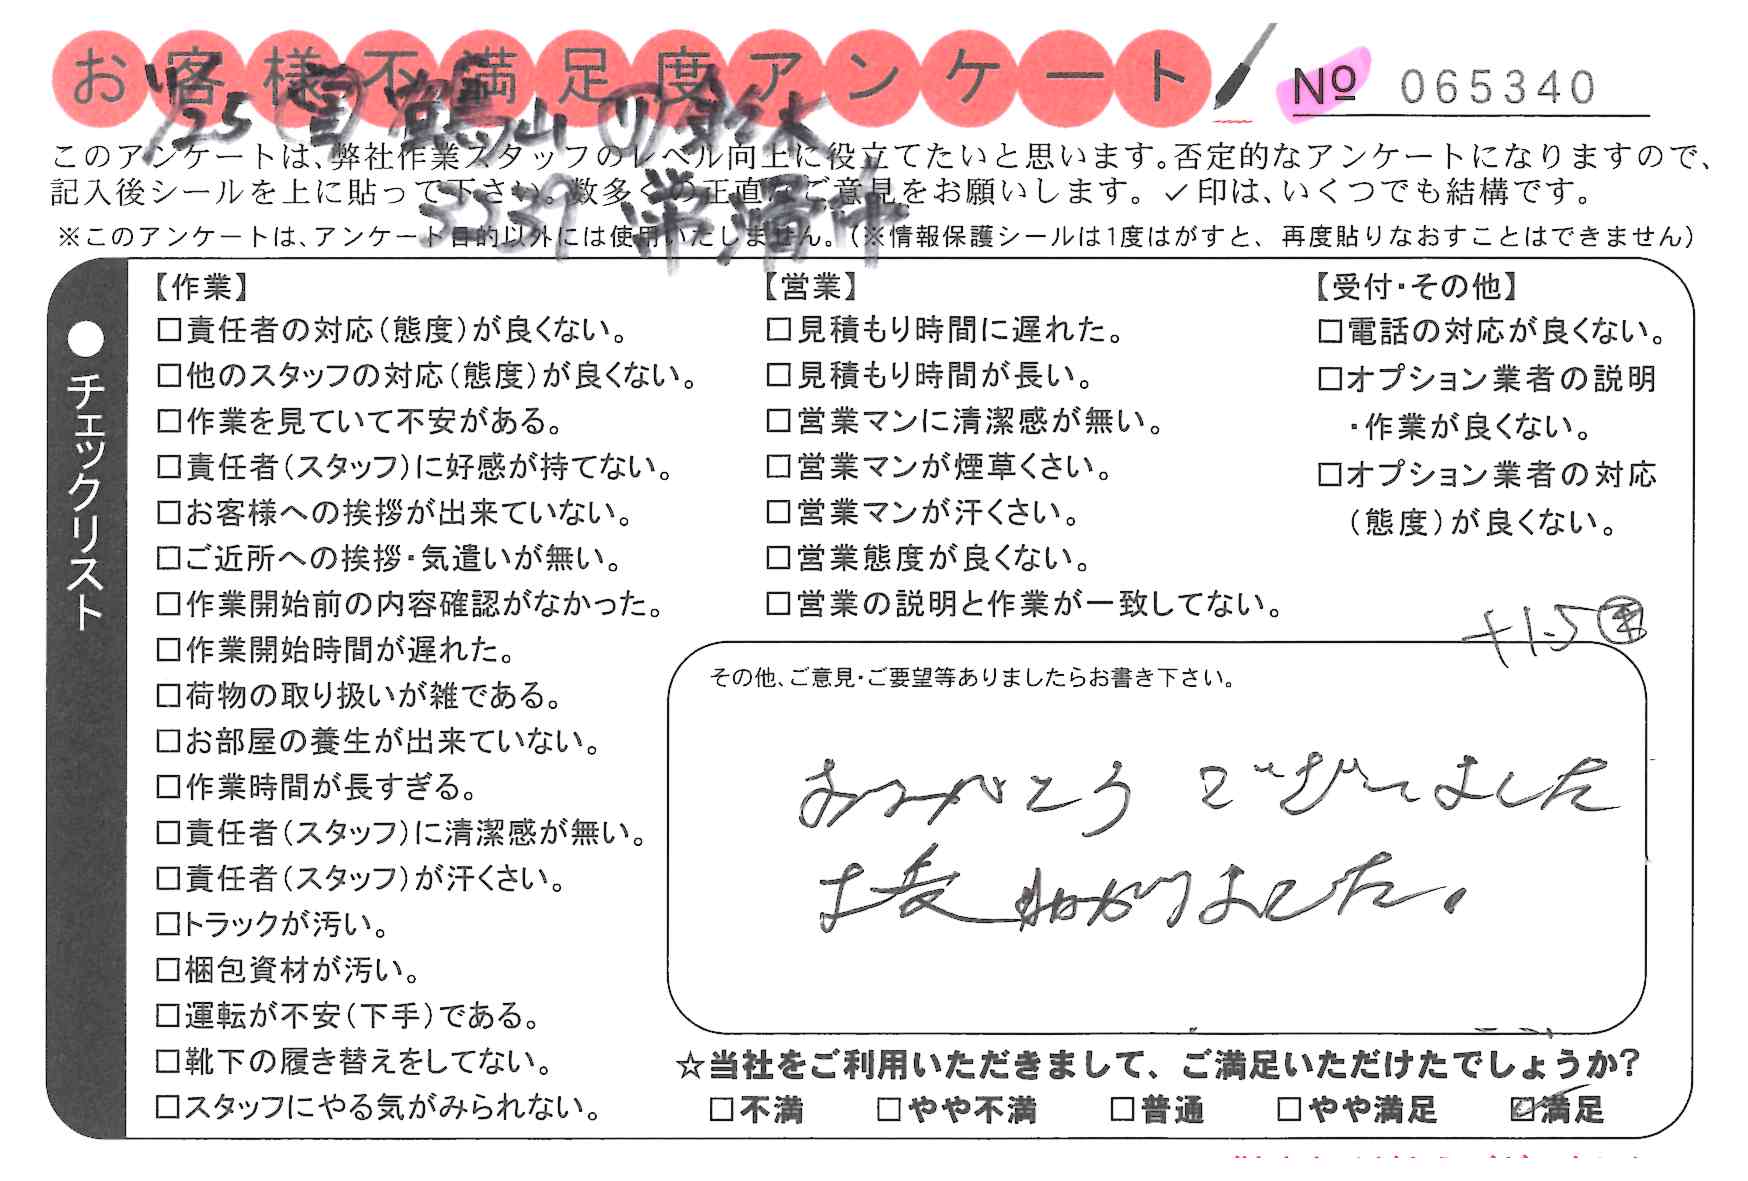 お客様不満足度アンケート
No 065340
このアンケートは、弊社作業スタッフのレベル向上に役立てたいと思います。否定的なアンケートになりますので、
記入後シールを上に貼って下さい。数多くの正直なご意見をお願いします。✓印は、いくつでも結構です。
※このアンケートは、アンケート目的以外には使用いたしません。(※情報保護シールは1度はがすと、再度貼りなおすことはできません)
●チェックリスト
【作業】
□責任者の対応(態度)が良くない。
□他のスタッフの対応(態度)が良くない。
□作業を見ていて不安がある。
□責任者(スタッフ)に好感が持てない。
□お客様への挨拶が出来ていない。
□ご近所への挨拶・気遣いが無い。
□作業開始前の内容確認がなかった。
□作業開始時間が遅れた。
□荷物の取り扱いが雑である。
□お部屋の養生が出来ていない。
□作業時間が長すぎる。
□責任者(スタッフ)に清潔感が無い。
□責任者(スタッフ)が汗くさい。
□トラックが汚い。
□梱包資材が汚い。
□運転が不安(下手)である。
□靴下の履き替えをしてない。
□スタッフにやる気がみられない。
【営業】
□見積もり時間に遅れた。
□見積もり時間が長い。
□営業マンに清潔感が無い。
□営業マンが煙草くさい。
□営業マンが汗くさい。
□営業態度が良くない。
□営業の説明と作業が一致してない。
【受付・その他】
□電話の対応が良くない。
□オプション業者の説明
・作業が良くない。
□オプション業者の対応
(態度)が良くない。
+1.5
その他、ご意見・ご要望等ありましたらお書き下さい。
ありがとうございました
大変助かりました。
☆当社をご利用いただきまして、ご満足いただけたでしょうか?
□不満 □やや不満 □普通 □やや満足 ☑満足